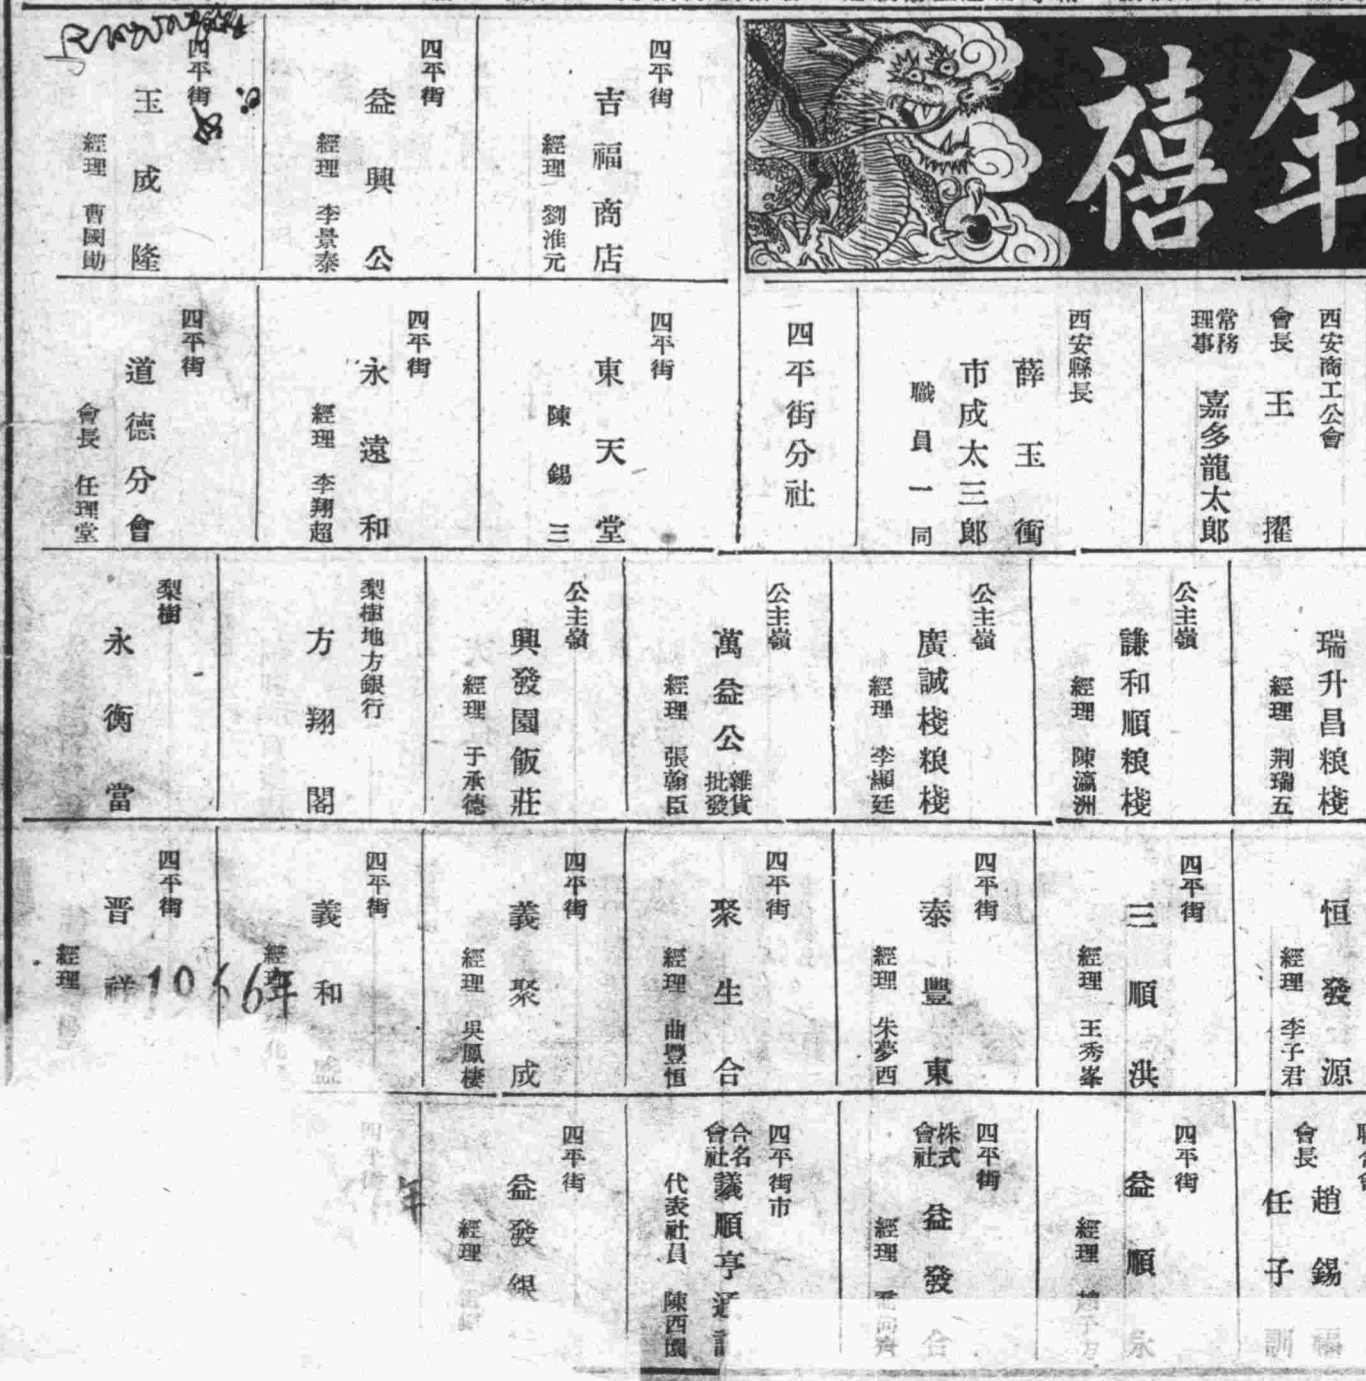 年禧
西安商工公會
會長 王擢
常務理事 嘉多龍太郎
西安縣長
薛玉衡
市成太三郎
職員一同
四平街分社
四平街
吉福商店
經理 劉淮元
四平街
益興公
經理 李景泰
四平街
玉成隆
經理 曹國勛
四平街
東天堂
陳錫三
四平街
永遠和
經理 李翔超
四平街
道德分會
會長 任理堂
瑞升昌粮棧
經理 荆瑞五
公主嶺
謙和順粮棧
經理 陳瀛洲
公主嶺
廣誠棧粮棧
經理 李顯廷
公主嶺
萬益公 雜貨批發
經理 張翰臣
公主嶺
興發園飯莊
經理 于承德
梨樹地方銀行
方翔閣
梨樹
永衡當
恒發源
經理 李子君
四平街
三順洪
經理 王秀峯
四平街
泰豐東
經理 朱夢西
四平街
聚生合
經理 曲豐恒
四平街
義聚成
經理 吳鳳棲
四平街
義和
經理
四平街
晋祥
經理
1066年
會長 趙錫福
任子訓
四平街
益順永
經理
四平街
株式會社 益發合
經理
四平街市
合名會社 議順亨通
代表社員 陳西園
四平街
益發銀
經理
四平街
年